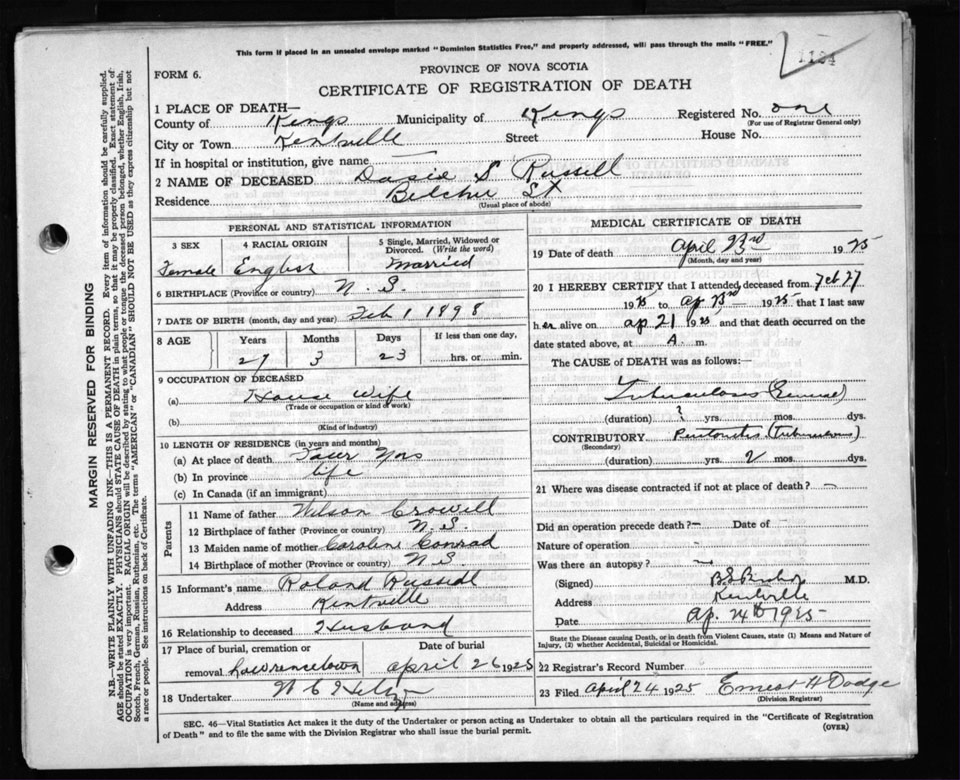 This form if placed in an unsealed envelope marked "Dominion Statistics Free," and properly addressed, will pass through the mails "FREE."
1124
FORM 6.
PROVINCE OF NOVA SCOTIA
CERTIFICATE OF REGISTRATION OF DEATH
1 PLACE OF DEATH—
County of Kings Municipality of Kings Registered No. one
(For use of Registrar General only)
City or Town Kentville Street House No.
If in hospital or institution, give name
2 NAME OF DECEASED S Russell
Residence Belcher St
(Usual place of abode)
PERSONAL AND STATISTICAL INFORMATION
3 SEX 4 RACIAL ORIGIN 5 Single, Married, Widowed or Divorced. (Write the word)
Female English Married
6 BIRTHPLACE (Province or country) N. S.
7 DATE OF BIRTH (month, day and year) Feb 1 1898
8 AGE Years Months Days If less than one day,
27 3 23 hrs. or min.
9 OCCUPATION OF DECEASED
(a) House Wife
(Trade or occupation or kind of work)
(b)
(Kind of industry)
10 LENGTH OF RESIDENCE (in years and months)
(a) At place of death Four Yrs
(b) In province life
(c) In Canada (if an immigrant)
Parents
11 Name of father Wilson Crowell
12 Birthplace of father (Province or country) N. S.
13 Maiden name of mother Caroline Conrad
14 Birthplace of mother (Province or country) N S
15 Informant's name Roland Russell
Address Kentville
16 Relationship to deceased Husband
17 Place of burial, cremation or removal Lawrencetown Date of burial April 26 1925
18 Undertaker W C
(Name and address)
MEDICAL CERTIFICATE OF DEATH
19 Date of death April 23rd 1925
(Month, day and year)
20 I HEREBY CERTIFY that I attended deceased from Feb 27
1925 to Ap 23rd 1925 that I last saw
h er alive on ap 21 1925 and that death occurred on
date stated above, at A. m.
The CAUSE of DEATH was as follows:—
Tuberculosis (General)
(duration) ? yrs. mos. dys.
CONTRIBUTORY Peritonitis (Tuberculous)
(Secondary)
(duration) yrs. 2 mos. dys.
21 Where was disease contracted if not at place of death? —
Did an operation precede death?— Date of —
Nature of operation —
Was there an autopsy? —
(Signed) M.D.
Address Kentville
Date Ap. 24th 1925
State the Disease causing Death, or in death from Violent Causes, state (1) Means and Nature of Injury, (2) whether Accidental, Suicidal or Homicidal.
22 Registrar's Record Number
23 Filed April 24 1925 Ernest H Dodge
(Division Registrar)
SEC. 46—Vital Statistics Act makes it the duty of the Undertaker or person acting as Undertaker to obtain all the particulars required in the "Certificate of Registration
of Death" and to file the same with the Division Registrar who shall issue the burial permit. (OVER)
MARGIN RESERVED FOR BINDING
N.B.—WRITE PLAINLY WITH UNFADING INK—THIS IS A PERMANENT RECORD. Every item of information should be carefully supplied.
AGE should be stated EXACTLY. PHYSICIANS should STATE CAUSE OF DEATH in plain terms, so that it may be properly classified. Exact statement of
OCCUPATION is very important. RACIAL ORIGIN will be described by stating to what people or tongue the deceased person belonged, whether English, Irish,
Scotch, French, German, Russian, Ruthenian, etc. The terms "AMERICAN" or "CANADIAN" SHOULD NOT BE USED as they express citizenship but not
a race or people. See instructions on back of Certificate.